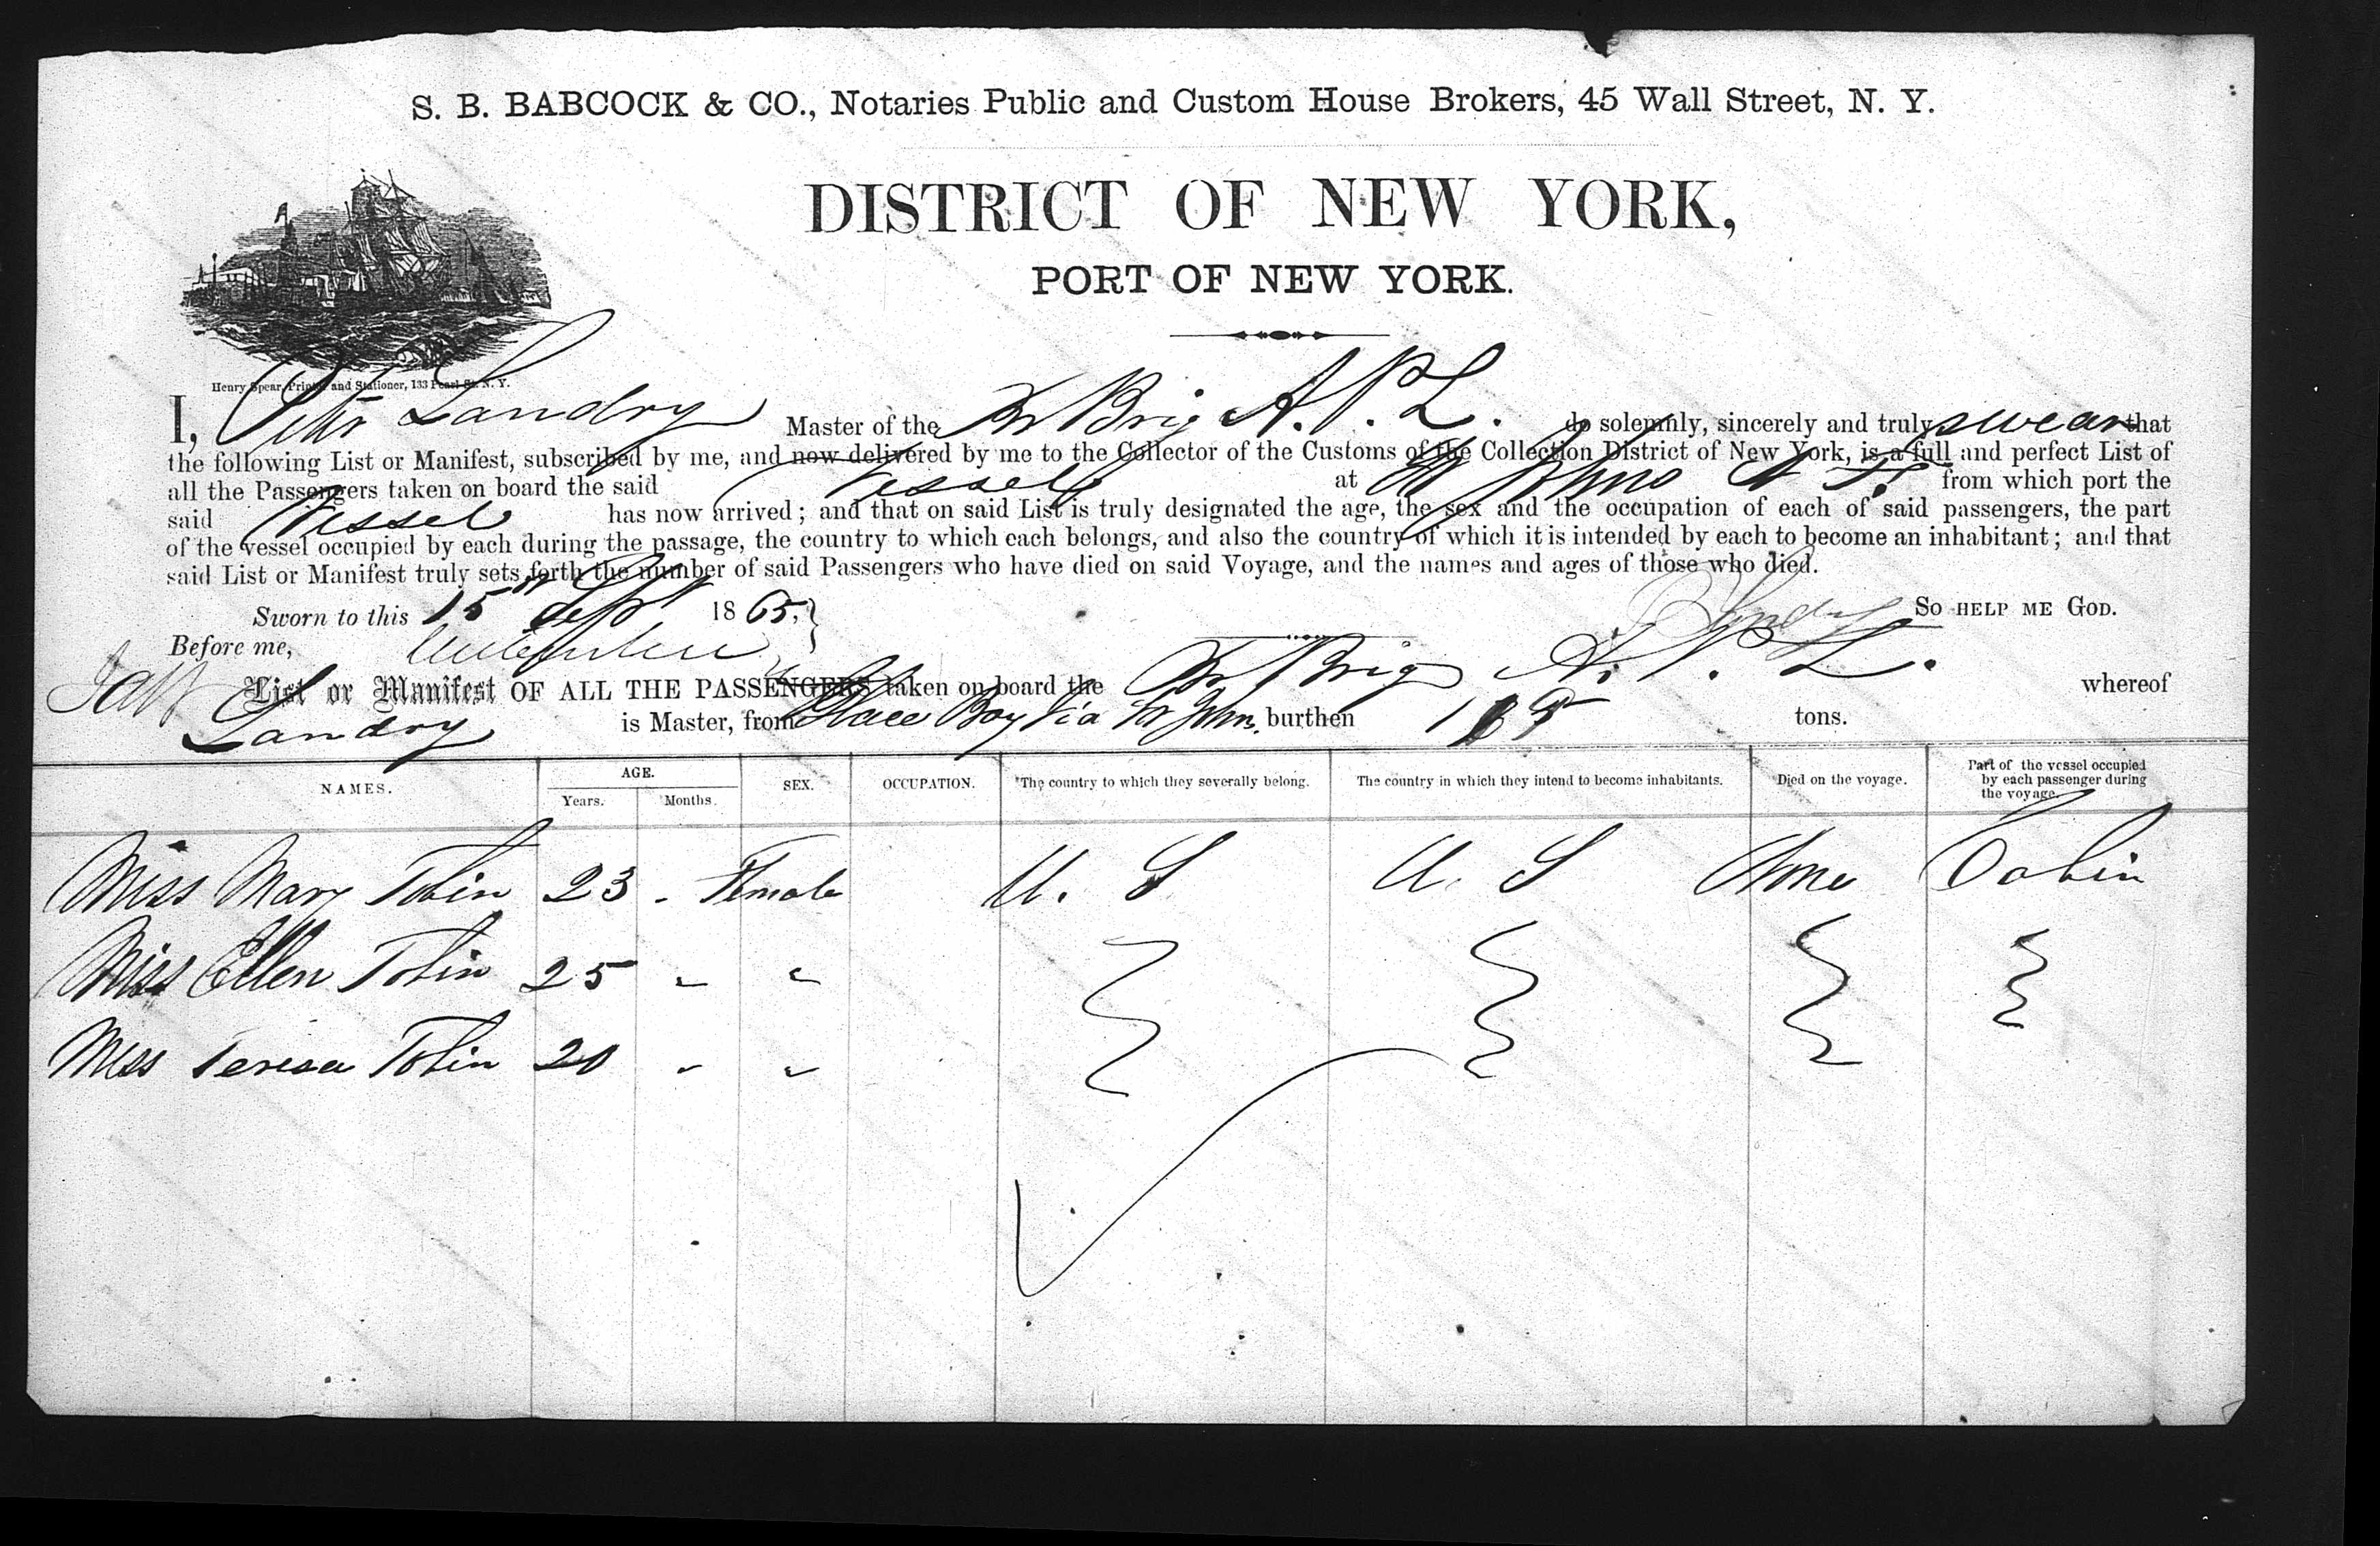 S. B. BABCOCK & CO., Notaries Public and Custom House Brokers, 45 Wall Street, N. Y.
DISTRICT OF NEW YORK,
PORT OF NEW YORK.
Henry Spear, Printer and Stationer, 133 Pearl St. N. Y.
I, Peter Landry Master of the Br Brig A. P. L. do solemnly, sincerely and truly swear that
the following List or Manifest, subscribed by me, and now delivered by me to the Collector of the Customs of the Collection District of New York, is a full and perfect List of
all the Passengers taken on board the said Vessel at St Johns N F. from which port the
said Vessel has now arrived; and that on said List is truly designated the age, the sex and the occupation of each of said passengers, the part
of the vessel occupied by each during the passage, the country to which each belongs, and also the country of which it is intended by each to become an inhabitant; and that
said List or Manifest truly sets forth the number of said Passengers who have died on said Voyage, and the names and ages of those who died.
Sworn to this 15th Sept 1865, P Landry SO HELP ME GOD.
Before me,
List or Manifest OF ALL THE PASSENGERS taken on board the Br Brig A. P. L. whereof
Landry is Master, from Glace Bay Via St Johns. burthen tons.
NAMES. AGE. Years. Months. SEX. OCCUPATION. The country to which they severally belong. The country in which they intend to become inhabitants. Died on the voyage. Part of the vessel occupied by each passenger during the voyage.
Miss Mary Tobin 23 - Female U. S U. S None Cabin
Miss Ellen Tobin 25 " "
Miss Teresa Tobin 20 " "